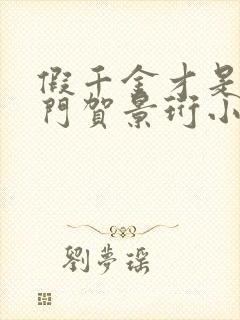 假千金才是
門賀景珩小
劉夢瑤